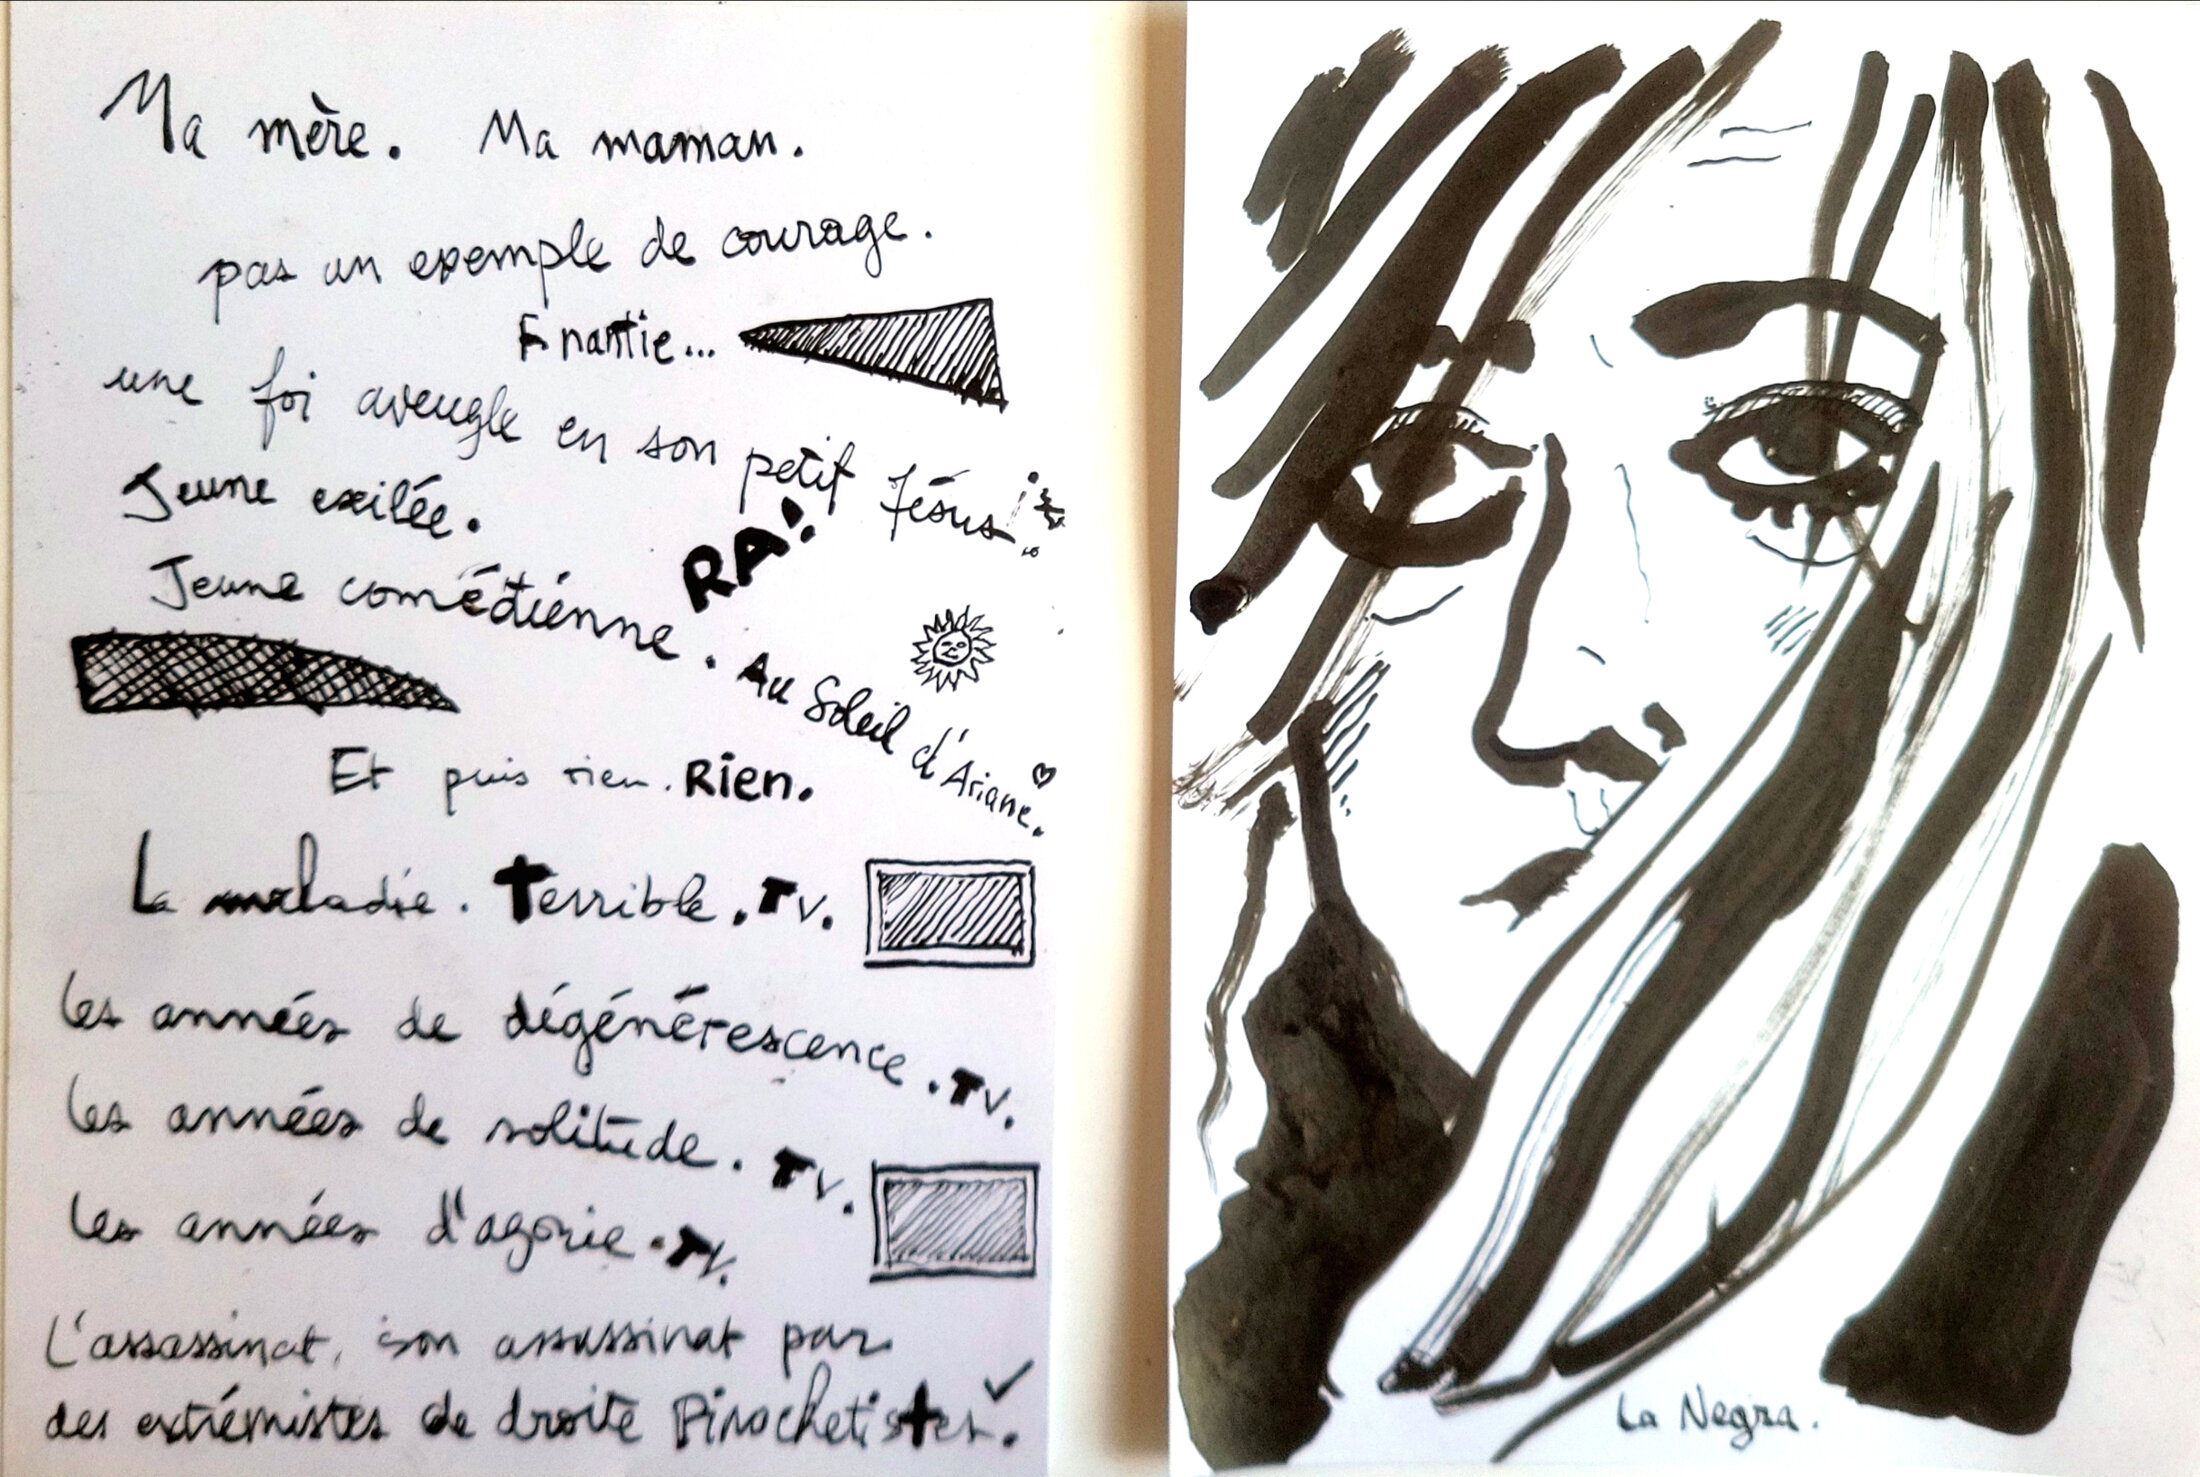 Ma mère. Ma maman.
pas un exemple de courage.
nantie...
une foi aveugle en son petit Jésus!
Jeune exilée.
RA!
Jeune comédiénne. Au Soleil d'Ariane.
Et puis rien. Rien.
La maladie. Terrible. TV.
Les années de dégénérescence. TV.
Les années de solitude. TV.
Les années d'agonie. TV.
L'assassinat, son assassinat par
des extrémistes de droite Pinochetistes.
La Negra.